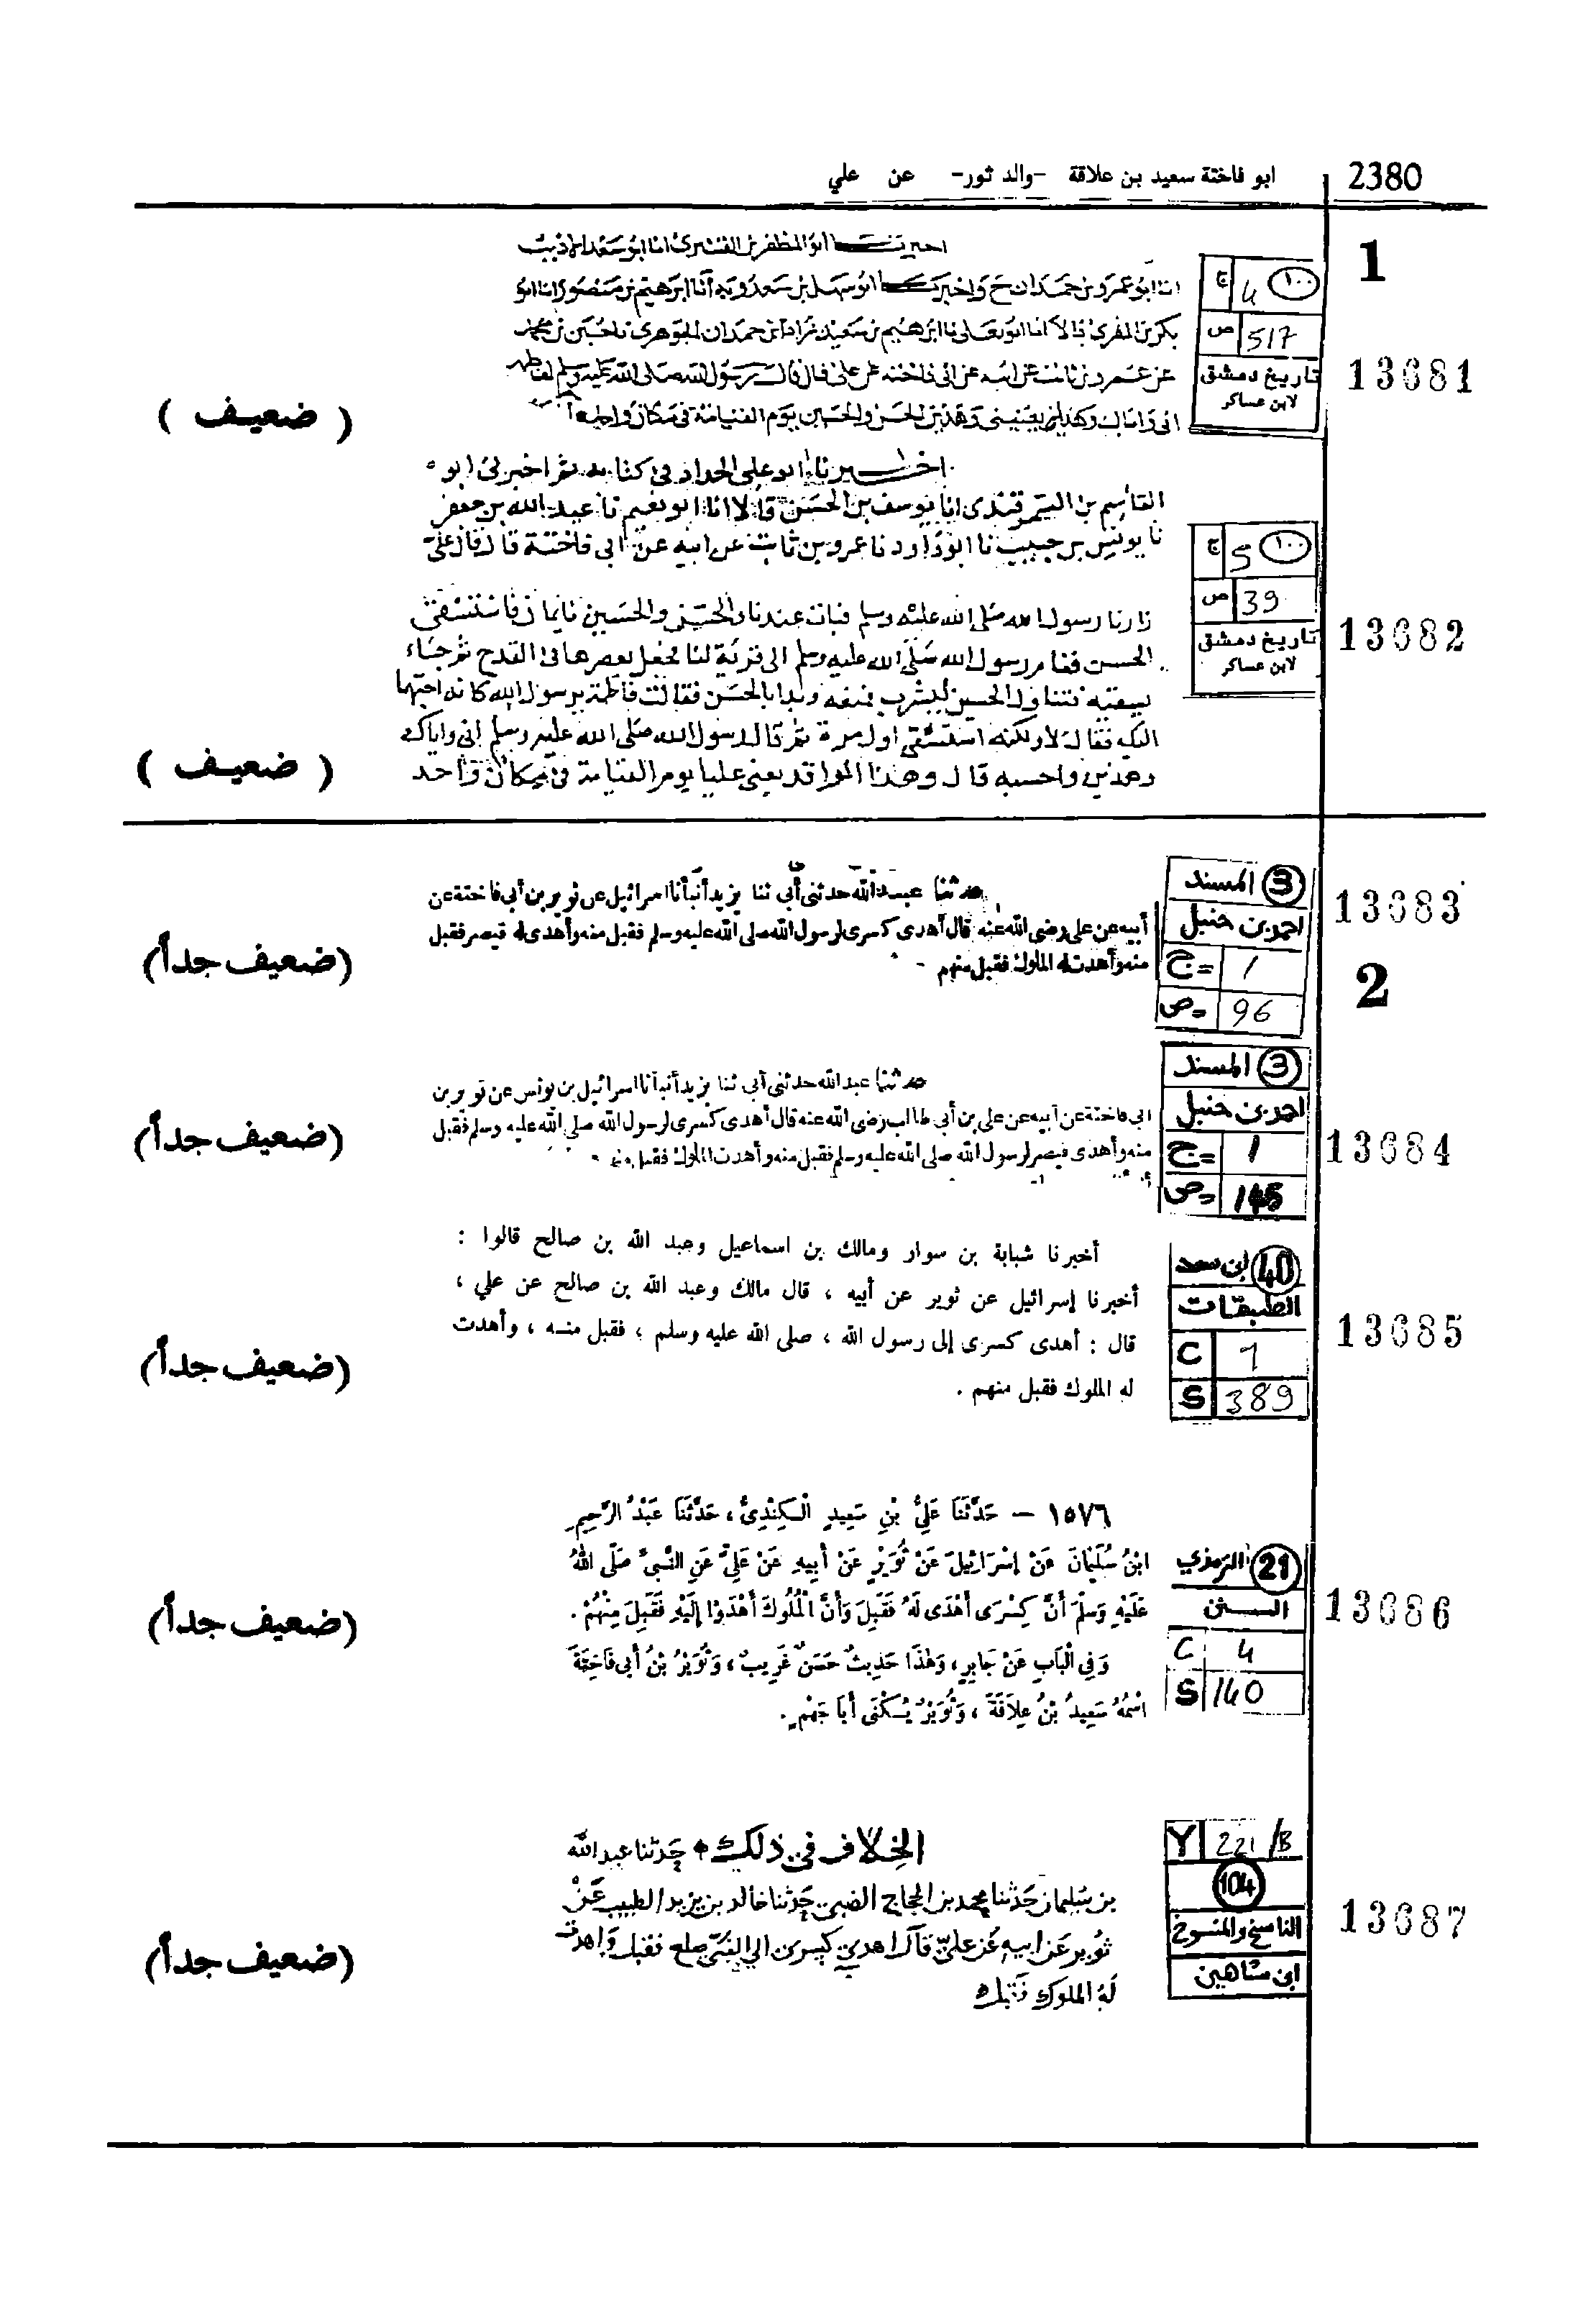 2380 ابو فاختة سعيد بن علاقة -والد ثور- عن علي
1
١٠٠ 4 ج
517 ص
تاريخ دمشق
لابن عساكر
13681
ابو المظفر بن القشيرى انا ابو سعد الاديب
انا ابو عمرو بن حمدان ح واخبرتنا ابو سهل بن سعدويه أنا ابرهيم بن منصور انا ابو
بكر بن المقرئ قالا انا ابو يعلى نا ابرهيم بن سعيد زاد ابن حمدان الجوهرى نا حسين بن محمد
عن عمرو بن ثابت عن ابيه عن ابى فاختة عن على قال قال رسول الله صلى الله عليه وسلم لفاطمة
انى واياك وهذين الحسن والحسين يوم القيامة فى مكان واحد
( ضعيف )
١٠٠ 5 ج
39 ص
تاريخ دمشق
لابن عساكر
13682
اخبرنا ابو على الحداد فى كتابه ثم اخبرنى ابو
القاسم بن السمرقندى انا يوسف بن الحسن قالا انا ابو نعيم نا عبد الله بن جعفر
نا يونس بن حبيب نا ابو داود نا عمرو بن ثابت عن ابيه عن ابي فاختة قال قال على
زارنا رسول الله صلى الله عليه وسلم فبات عندنا والحسن والحسين نايمان فاستسقى
الحسن فقام رسول الله صلى الله عليه وسلم الى قربة لنا فجعل يعصرها فى القدح ثم جاء
يسقيه فتناول الحسين ليشرب فمنعه وبدا بالحسن فقالت فاطمة يرسول الله كانه احبهما
اليك فقال لا ولكنه استسقى اول مرة ثم قال رسول الله صلى الله عليه وسلم انى واياك
وهذين واحسبه قال وهذا الراقد يعنى عليا يوم القيامة فى مكان واحد
( ضعيف )
3 المسند
احمد بن حنبل
1 =ج
96 =ص
13683
2
حدثنا عبد الله حدثنى أبى ثنا يزيد أنبأنا اسرائيل عن ثوير بن أبى فاختة عن
أبيه عن على رضى الله عنه قال أهدى كسرى لرسول الله صلى الله عليه وسلم فقبل منه وأهدى له قيصر فقبل
منه وأهدت له الملوك فقبل منهم
(ضعيف جداً)
3 المسند
احمد بن حنبل
1 =ج
145 =ص
13684
حدثنا عبد الله حدثنى أبى ثنا يزيد أنبأنا اسرائيل بن يونس عن ثوير بن
ابى فاختة عن أبيه عن على بن أبى طالب رضى الله عنه قال أهدى كسرى لرسول الله صلى الله عليه وسلم فقبل
منه وأهدى قيصر لرسول الله صلى الله عليه وسلم فقبل منه وأهدت الملوك فقبل منهم
(ضعيف جداً)
40 ابن سعد
الطبقات
C 1
S 389
13685
أخبرنا شبابة بن سوار ومالك بن اسماعيل وعبد الله بن صالح قالوا :
أخبرنا إسرائيل عن ثوير عن أبيه ، قال مالك وعبد الله بن صالح عن علي ،
قال : أهدى كسرى إلى رسول الله ، صلى الله عليه وسلم ، فقبل منه ، وأهدت
له الملوك فقبل منهم .
(ضعيف جداً)
21 الترمذي
السنن
C 4
S 140
13686
١٥٧٦ — حَدَّثَنَا عَلِيُّ بْنِ سَعِيدٍ الْكِنْدِيُّ ، حَدَّثَنَا عَبْدُ الرَّحِيمِ
ابْنُ سُلَيْمَانَ عَنْ إِسْرَائِيلَ عَنْ ثُوَيْرٍ عَنْ أَبِيهِ عَنْ عَلِيٍّ عَنِ النَّبِيِّ صَلَّى اللهُ
عَلَيْهِ وَسَلَّمَ أَنَّ كِسْرَى أَهْدَى لَهُ فَقَبِلَ وَأَنَّ الْمُلُوكَ أَهْدَوْا إِلَيْهِ فَقَبِلَ مِنْهُمْ .
وَفِي الْبَابِ عَنْ جَابِرٍ ، وَهٰذَا حَدِيثٌ حَسَنٌ غَرِيبٌ ، وَثُوَيْرُ بْنُ أَبِي فَاخِتَةَ
اسْمُهُ سَعِيدُ بْنُ عِلَاقَةَ ، وَثُوَيْرٌ يُكْنَى أَبَا جَهْمٍ .
(ضعيف جداً)
Y 221/B
104
الناسخ والمنسوخ
ابن شاهين
13687
الخلاف فى ذلك حدثنا عبد الله
بن سليمان حدثنا محمد بن الحجاج الضبى حدثنا خالد بن يزيد الطبيب عن
ثوير عن ابيه عن على قال اهدى كسرى الى النبى صلع فقبل واهدت
له الملوك فقبل
(ضعيف جداً)